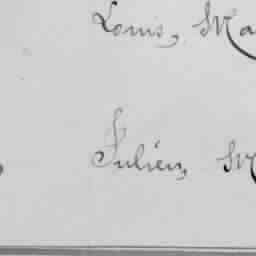 Louis, Ma
Julien, M